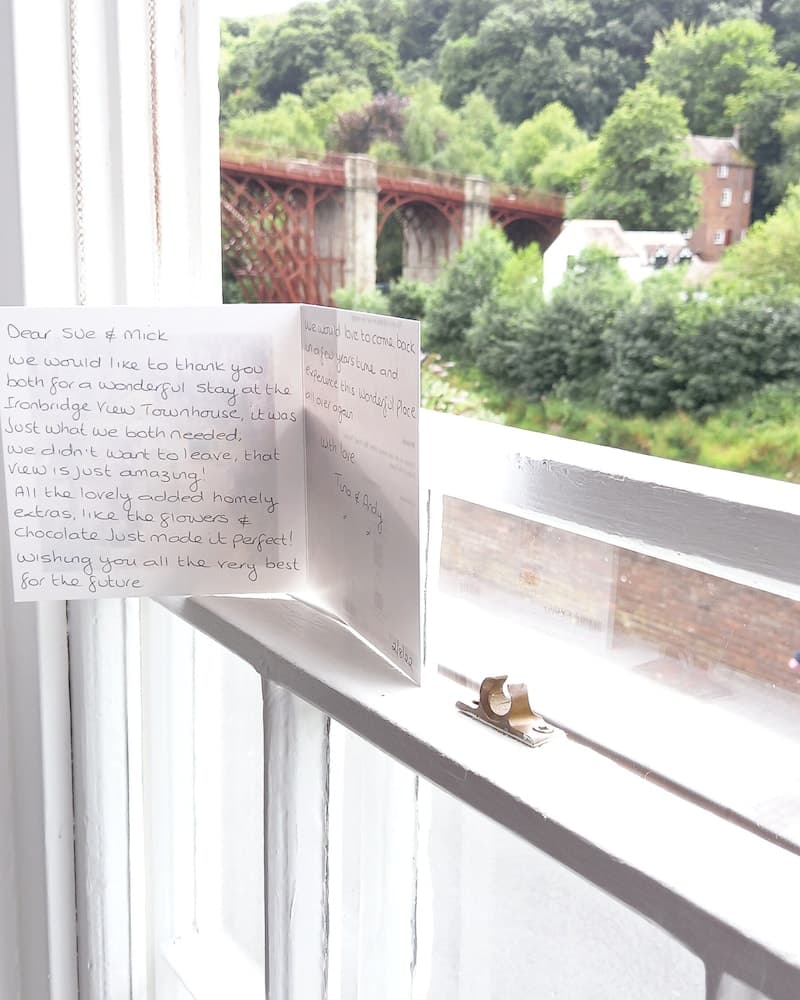 Dear Sue & Mick
we would like to thank you
both for a wonderful stay at the
Ironbridge View Townhouse, it was
Just what we both needed,
we didn't want to leave, that
view is just amazing!
All the lovely added homely
extras, like the flowers &
chocolate Just made it perfect!
Wishing you all the very best
for the future
We would love to come back
in a few years time and
experience this wonderful place
all over again
With love
Tina & Andy
x x
2/8/22